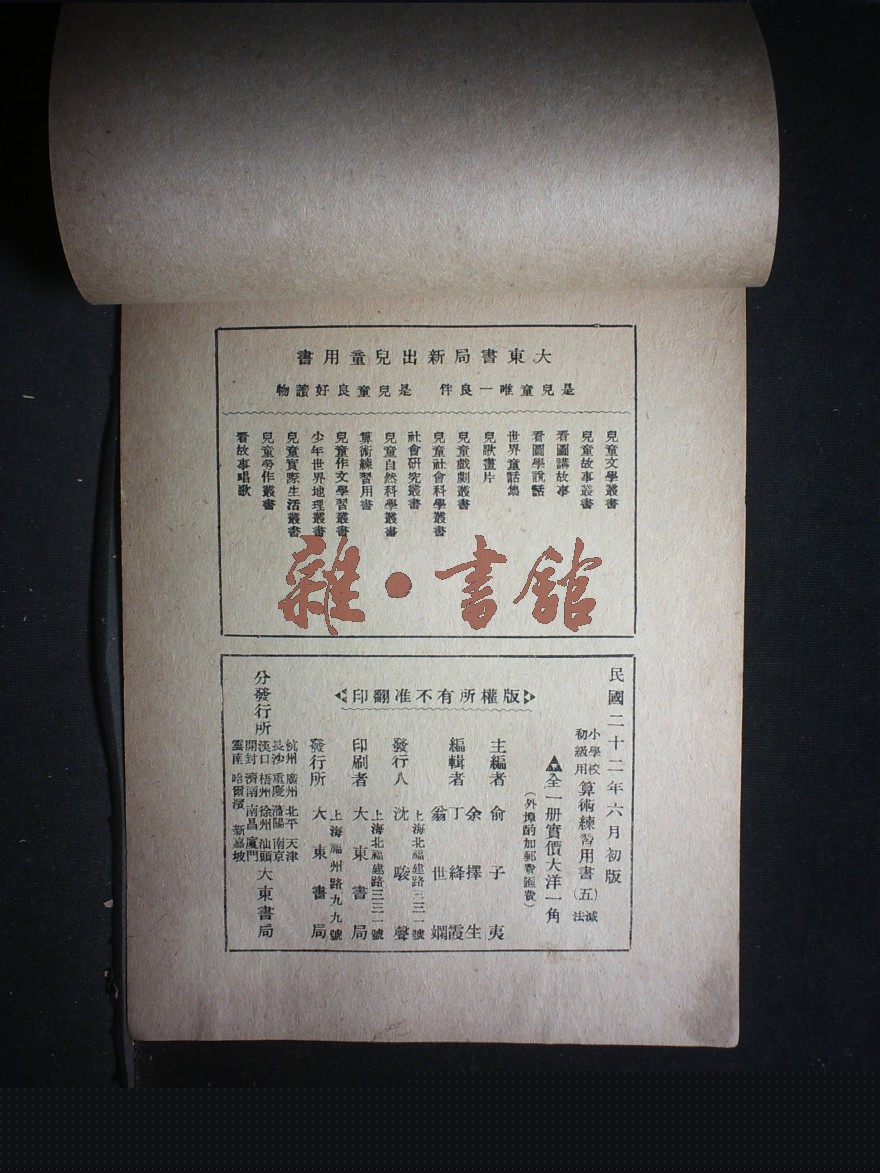 大東書局新出兒童用書
是兒童唯一良伴　是兒童良好讀物
兒童文學叢書
兒童故事叢書
看圖講故事
看圖學說話
世界童話集
兒歌畫片
兒童戲劇叢書
兒童社會科學叢書
社會研究叢書
兒童自然科學叢書
算術練習用書
兒童作文學習叢書
少年世界地理叢書
兒童實際生活叢書
兒童勞作叢書
看故事唱歌
雜·書館
民國二十二年六月初版
小學校初級用 算術練習用書（五）減法
全一册實價大洋一角
（外埠酌加郵費匯費）
版權所有不准翻印
主編者 俞子夷
編輯者 余擇生
丁絳霞
翁世嫻
發行人 沈駿聲
上海北福建路三三一號
印刷者 大東書局
上海北福建路三三一號
發行所 大東書局
上海福州路九九號
分發行所
杭州 廣州 北平 天津
長沙 重慶 瀋陽 南京
漢口 梧州 徐州 汕頭
開封 濟南 南昌 廈門
雲南 哈爾濱 新嘉坡
大東書局